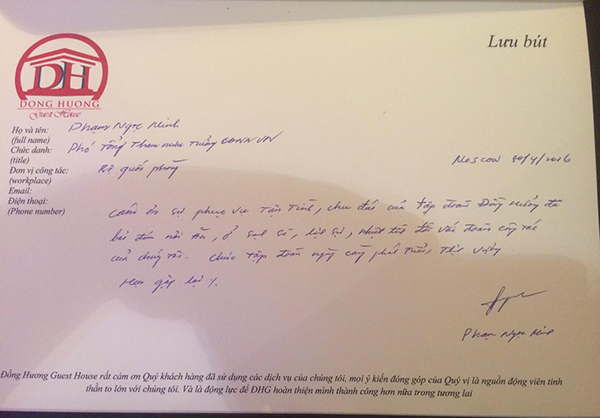 Lưu bút
DH
DONG HUONG
Guest House
Họ và tên: Phạm Ngọc Minh
(full name)
Chức danh: Phó Tổng Tham mưu Trưởng QĐNDVN
(title)
Đơn vị công tác: Bộ quốc phòng
(workplace)
Moscow 30/4/2016
Email:
Điện thoại:
(Phone number)
Cảm ơn sự phục vụ Tận Tình, chu đáo của Tập đoàn Đồng Hương đã
bố nơi ăn, ở sạch sẽ, lịch sự, nhiệt tình đối với đoàn công tác
của chúng tôi. Chúc Tập đoàn ngày càng phát Triển, Thịnh vượng
Hẹn gặp lại
Phạm Ngọc Minh
Đồng Hương Guest House rất cảm ơn Quý khách hàng đã sử dụng các dịch vụ của chúng tôi, mọi ý kiến đóng góp của Quý vị là nguồn động viên tinh
thần to lớn với chúng tôi. Và là động lực để ĐHG hoàn thiện mình thành công hơn nữa trong tương lai